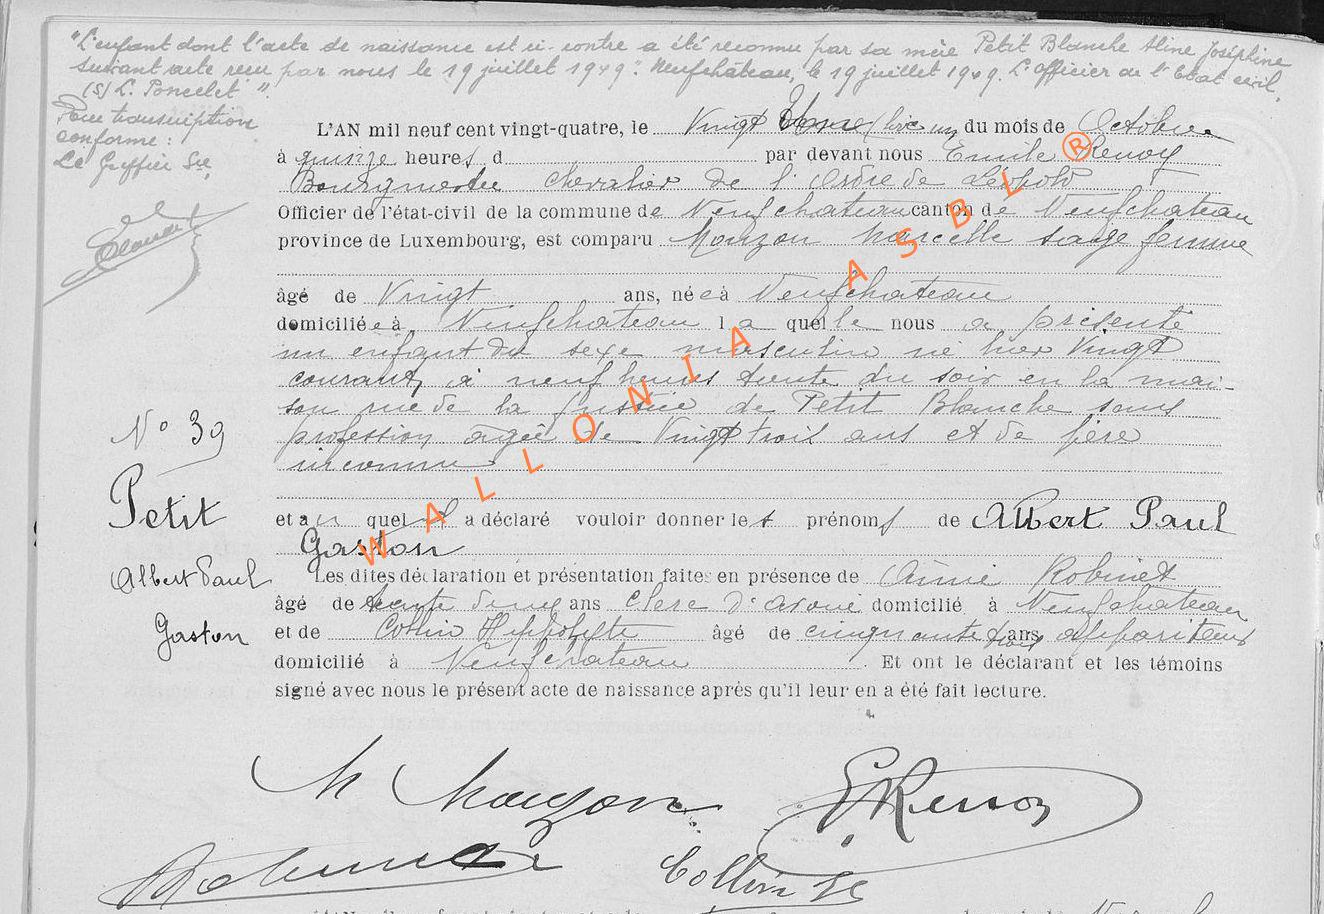 "L'enfant dont l'acte de naissance est ci-contre a été reconnu par sa mère Petit Blanche Aline Joséphine
suivant acte reçu par nous le 19 juillet 1949". Neufchâteau, le 19 juillet 1949. L'officier de l'Etat civil,
(s) L. Poncelet ".
Pour transcription
conforme :
Le Greffier
L'AN mil neuf cent vingt-quatre, le Vingt un du mois de Octobre
à quinze heures d par devant nous Emile Renoy
Bourgmestre Chevalier de l'Ordre de Léopold
Officier de l'état-civil de la commune de Neufchateau canton de Neufchateau
province de Luxembourg, est comparu Mouzon Marcelle sage femme
âgé de Vingt ans, née à Neufchateau
domiciliée à Neufchateau laquelle nous a présenté
un enfant du sexe masculin né hier Vingt
courant, à neuf heures trente du soir en la mai-
son rue de la Justice de Petit Blanche sans
profession agée de Vingt trois ans et de père
inconnu
N° 39
Petit
Albert Paul
Gaston
et au quel a déclaré vouloir donner les prénoms de Albert Paul
Gaston
Les dites déclaration et présentation faites en présence de Aimé Robinet
âgé de trente ans clerc d'avoué domicilié à Neufchateau
et de Collin Hippolyte âgé de cinquante trois ans appariteur
domicilié à Neufchateau . Et ont le déclarant et les témoins
signé avec nous le présent acte de naissance après qu'il leur en a été fait lecture.
M Mouzon
ERenoy
Robinet
Collin H
WALLONIA ASBL ®